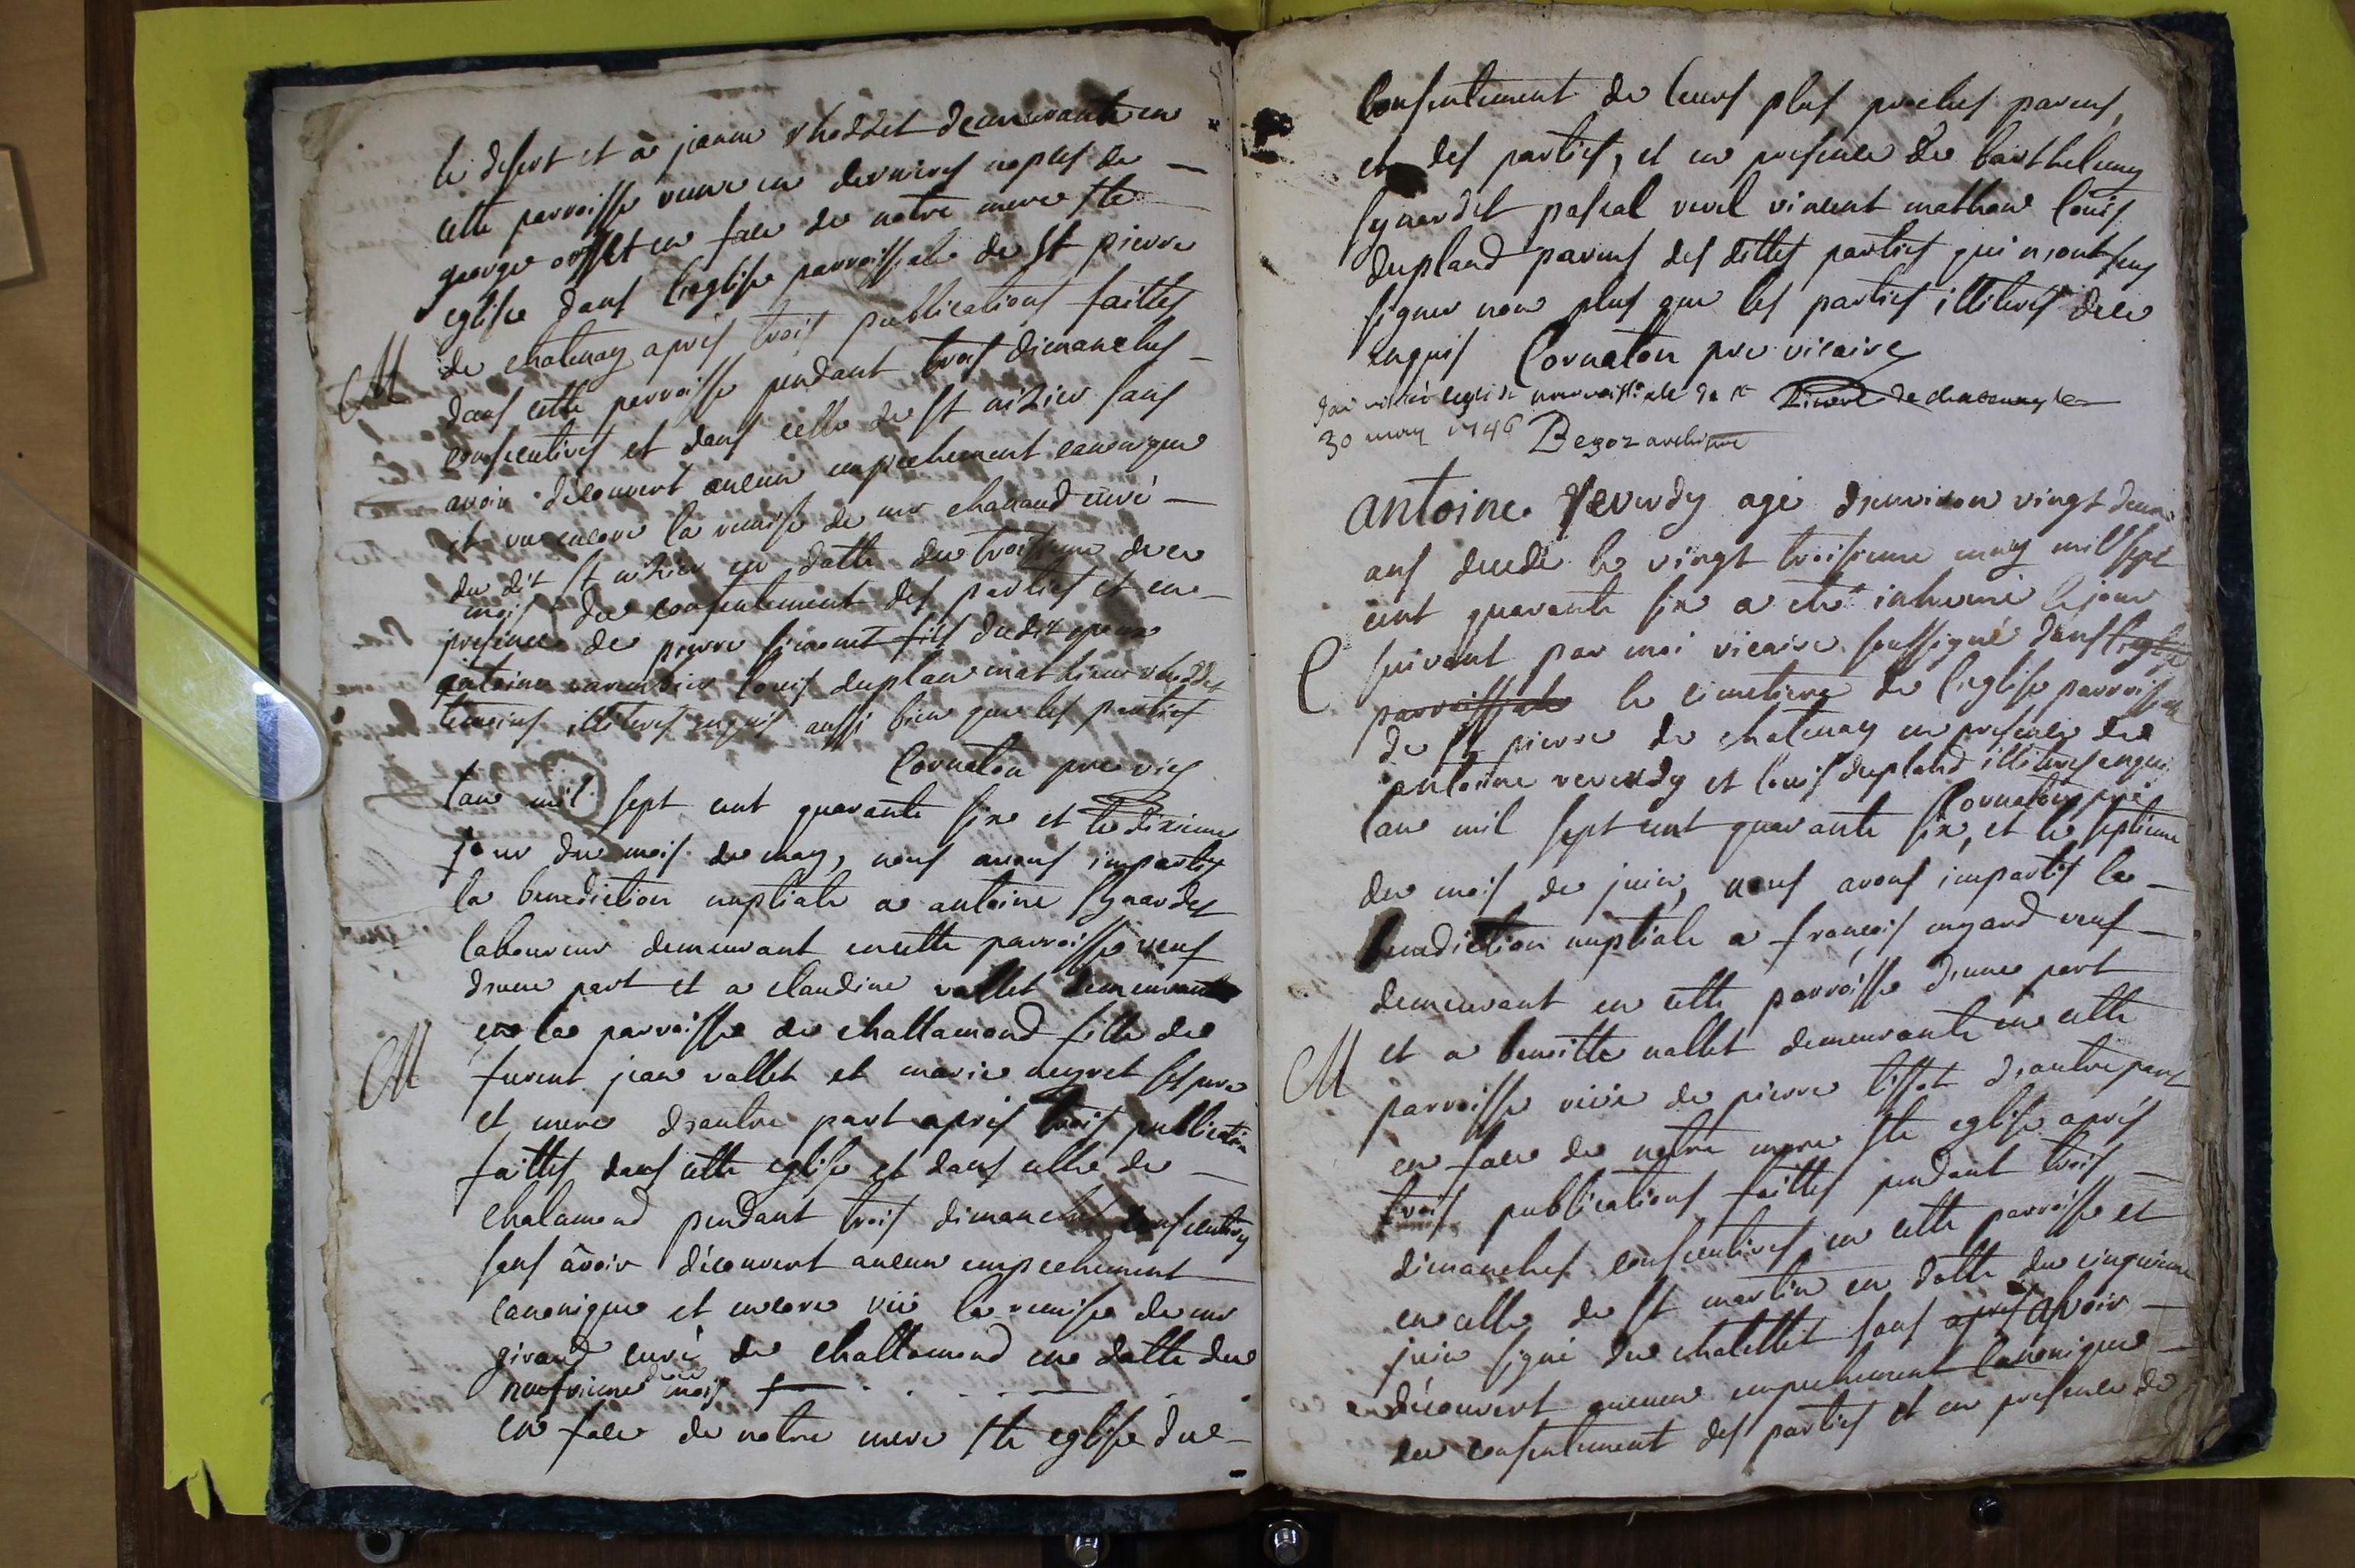 le desert et a jeanne rhoddet demeurante en
cette parroisse veuve en dernieres nopces de
george en face de notre mere ste
eglise dans l'eglise parroissiale de st pierre
de chatenay apres trois publications faittes
dans cette parroisse pendant trois dimanches
consecutives et dans celle de st nizier sans
avoir découvert aucun empechement canonique
et vu encore la remise de mr chanand curé
du dit st nizier en datte du troisieme de ce
mois du consentement des parties et en
presence de pierre fils dudit epoux
antoine louis duplan mathieu rhoddet
temoins illiteres enquis aussi bien que les parties
Cornaton pre vic
M
lan mil sept cent quarante six et le dixieme
jour du mois de may, nous avons impartis
la benediction nuptiale a antoine synardet
laboureur demeurant en cette parroisse veuf
d'une part et a claudine vallet demeurante
en la parroisse de challamond fille de
furent jean vallet et marie neyret ses pere
et mere d'autre part apres trois publication
faittes dans cette eglise et dans celle de
chalamond pendant trois dimanches consecutives
sans avoir découvert aucun empechement
canonique et encore vüe la remise de mr
girand curé de challamond en datte du
neufvieme de ce mois
en face de notre mere ste eglise du
M
consentement de leurs plus proches parens,
et des parties, et en presence de barthelemy
synardet pascal vincent mathieu louis
dupland parens des dittes parties qui n'ont sçus
signer non plus que les parties illiteres de ce
enquis Cornaton pre vicaire
j'ai visité l'eglise parroissiale de st Pierre de chatenay le
30 may 1746 Begoz archipre
antoine reverdy agé d'environ vingt deux
ans decedé le vingt troisieme may mil sept
cent quarante six a eté inhumé le jour
suivant par moi vicaire soussigné dans l'eglise
parroissiale le cimetiere de l'eglise parroissiale
de st pierre de chatenay en presence de
antoine reverdy et louis dupland illiteres enquis
Cornaton pre
C
lan mil sept cent quarante six, et le septieme
du mois de juin, nous avons impartis la
benediction nuptiale a françois mygard veuf
demeurant en cette parroisse d'une part
et a benoitte vallet demeurante en cette
parroisse veuve de pierre tissot d'autre part
en face de notre mere ste eglise aprés
trois publications faittes pendant trois
dimanches consecutives en cette parroisse et
en celle de st martin en datte du cinquieme
juin signé du chatellet sans apres avoir
découvert aucun empechement canonique
du consentement des parties et en presence de
M